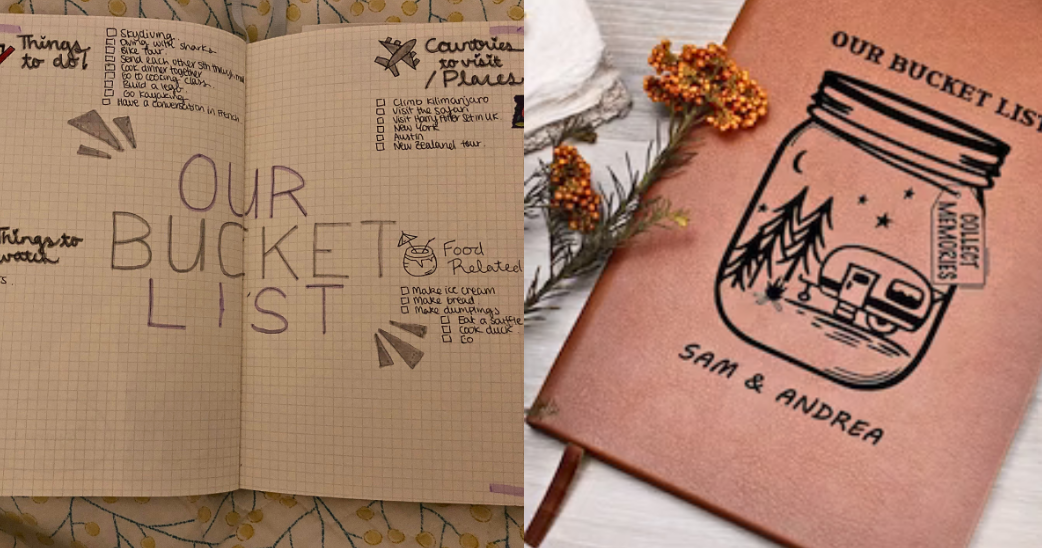 Things
to do!
Skydiving
Diving with sharks
Bike tour
Send each other sth through mail
Cook dinner together
Go to cooking class
Build a lego
Go kayaking
Have a conversation in French
Countries
to visit
/Places
Climb Kilimanjaro
Visit the safari
Visit Harry Potter set in UK
New York
Austin
New Zealand tour
OUR
BUCKET
LIST
Things to
watch
s.
Food
Related
Make ice cream
Make bread
Make dumplings
Eat a souffle
Cook duck
Go
OUR BUCKET LIST
COLLECT
MEMORIES
SAM & ANDREA